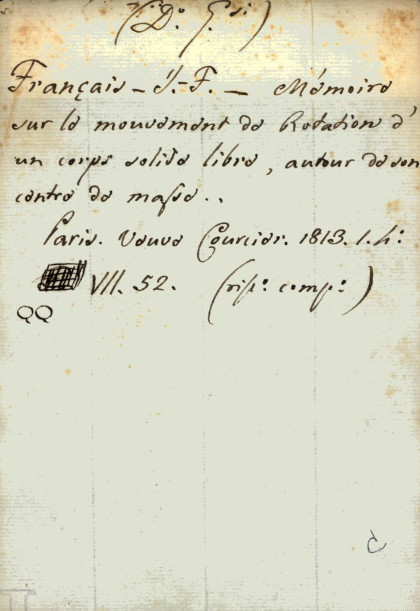 (D.º G.si)
Français - J.-F. — Mémoire
sur le mouvement de Rotation d'
un corps solide libre, autour de son
centre de masse..
Paris. Veuve Courcier. 1813. 1. 4.º
VII. 52. (rip.º comp.º)
QQ
C